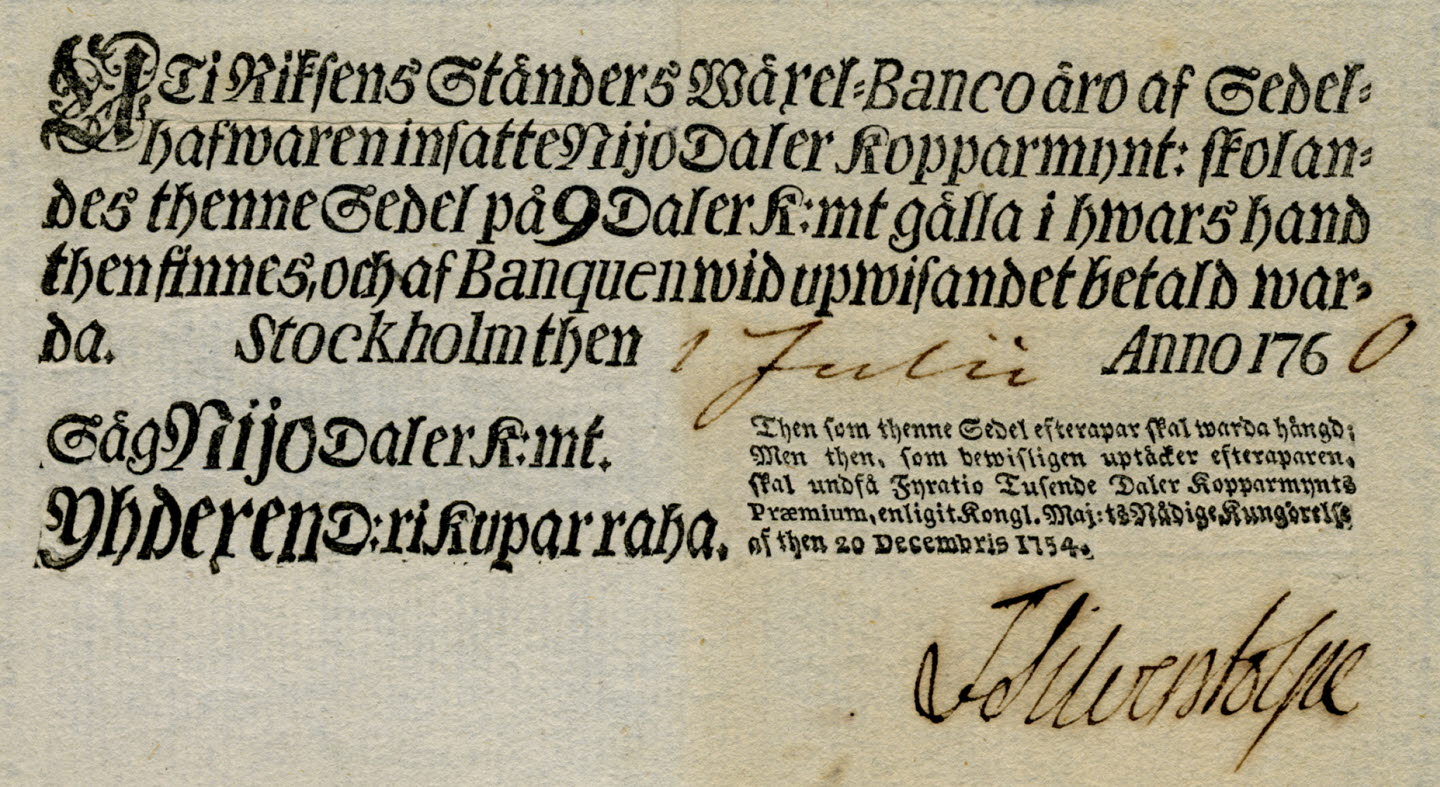 UTi Riksens Ständers Wäxel-Banco äro af Sedel-
hafwaren insatte Nijo Daler Kopparmynt: skolan-
des thenne Sedel på 9 Daler K:mt gälla i hwars hand
then finnes, och af Banquen wid upwisandet betald war-
da. Stockholm then 1 Julii Anno 1760
Säg Nijo Daler K:mt.
Yhdexen D:ri Kupar raha.
Then som thenne Sedel efterapar skal warda hängd;
Men then, som bewisligen uptäcker efteraparen,
skal undfå Fyratio Tusende Daler Kopparmynts
Præmium, enligit Kongl. Maj:ts Nådige Kungörelse
af then 20 Decembris 1754.
J Silverstolpe